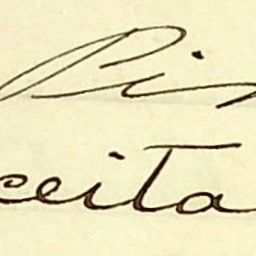 Pi
ceita